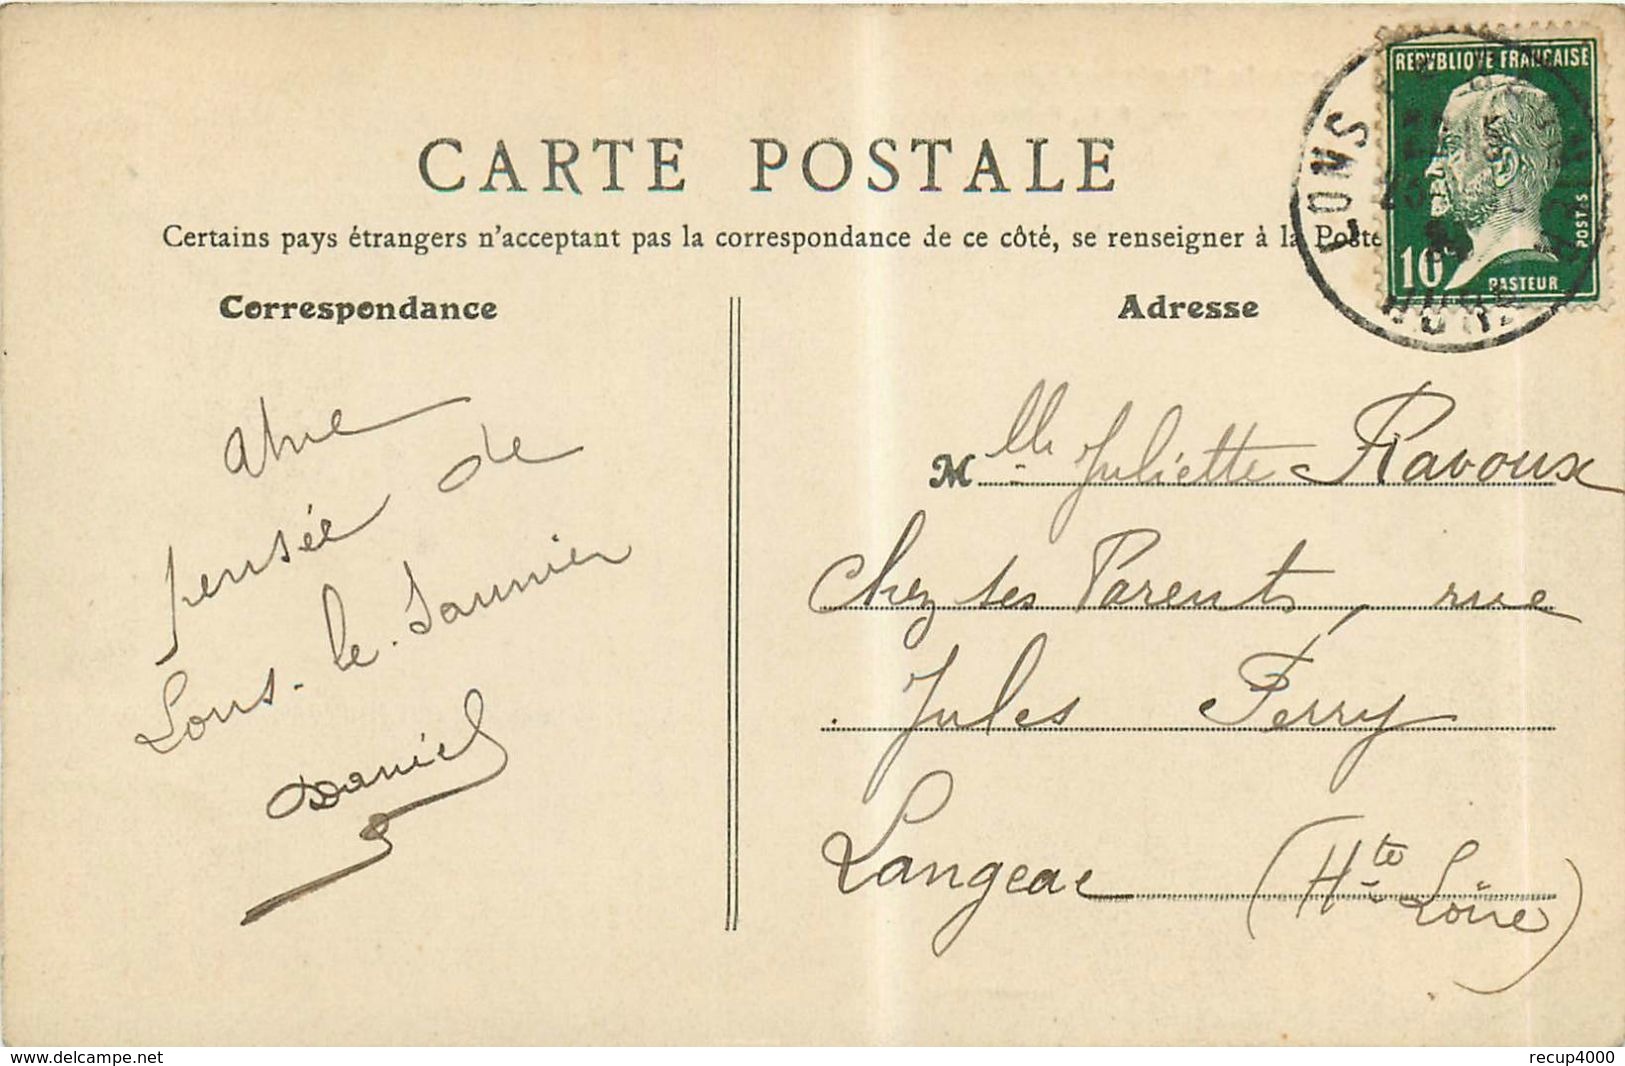 CARTE POSTALE
Certains pays étrangers n'acceptent pas la correspondance de ce côté, se renseigner à la Poste
Correspondance
Adresse
REPVBLIQVE FRANÇAISE
POSTES
10
PASTEUR
LONS
pensée de
Lons-le-Saunier
Daniel
Mlle Juliette Ravoux
Chez ses Parents, rue
Jules Ferry
Langeac (Hte Loire)
www.delcampe.net
recup4000